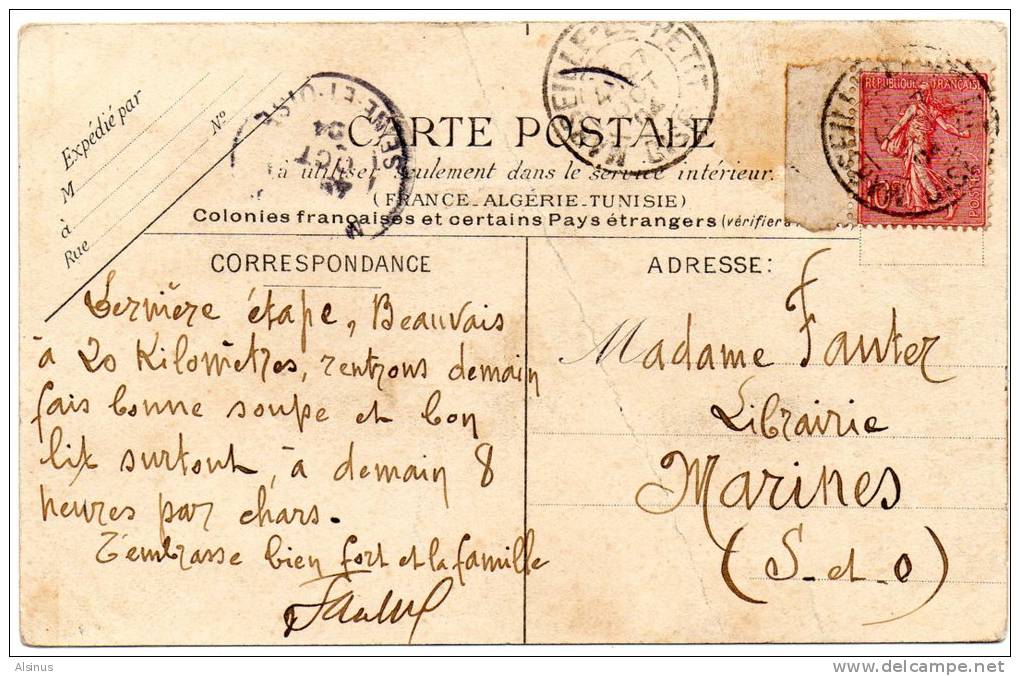 Expédié par
M
à
Rue
Nº
SEINE-ET-OISE
OCT
04
MARSEILLE-LE-PETIT
OISE
REPUBLIQUE FRANÇAISE
10
POSTES
CARTE POSTALE
à utiliser seulement dans le service intérieur.
(FRANCE_ALGÉRIE_TUNISIE)
Colonies françaises et certains Pays étrangers (vérifier
CORRESPONDANCE
Dernière étape, Beauvais
à 20 Kilomètres, rentrons demain
fais bonne soupe et bon
lit surtout, à demain 8
heures par chars.
T'embrasse bien fort et la famille
ADRESSE:
Madame Fauter
Librairie
Marines
(S-et-O)
Alsinus
delcampe.net